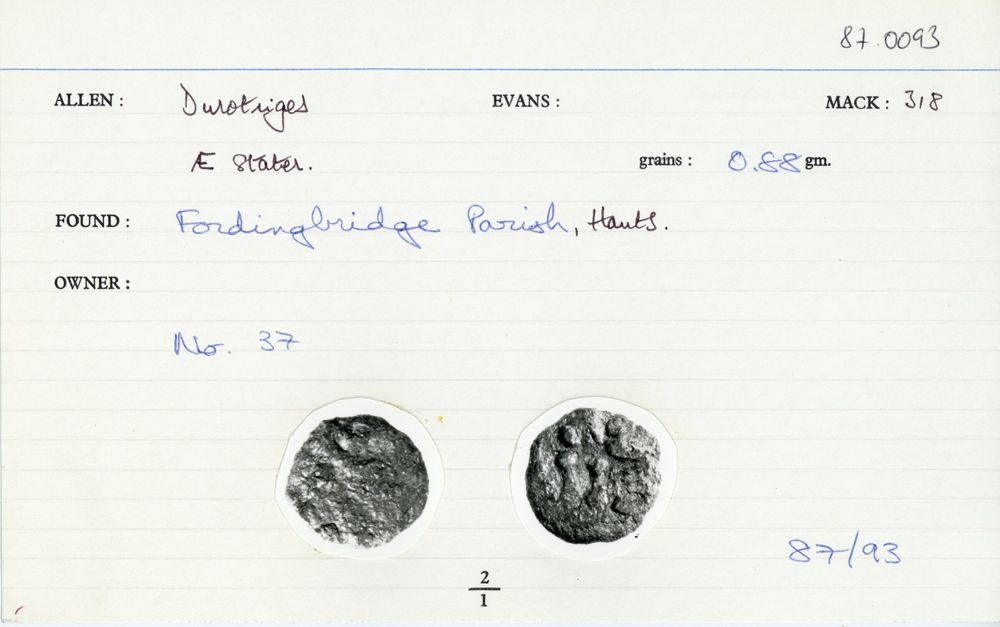 87.0093
ALLEN : Durotriges EVANS : MACK : 318
Æ Stater. grains : 0.88 gm.
FOUND : Fordingbridge Parish, Hants.
OWNER :
No. 37
87/93
2
1